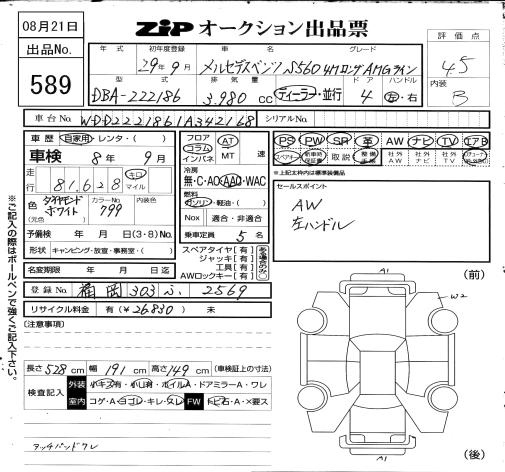 08月21日
出品No.
589
ZiP オークション出品票
評価点
4.5
内装
B
年式 初年度登録 車名 グレード
29年9月 メルセデスベンツ S560 4Mロング AMGライン
型式 排気量 ドア ハンドル
DBA-222186 3,980 cc ディーラー・並行 4 左・右
車台No. WDD2221861A342168 シリアルNo.
車歴 自家用・レンタ・( )
車検 8年 9月
走行 81,628 キロ マイル
色 ダイヤモンドホワイト カラーNo. 799 内装色
(元色)
予備検 年 月 日(3・8)No.
形状 キャンピング・放宣・事務室・( )
名変期限 年 月 日迄
フロア コラム インパネ AT MT 速
冷房 無・C・AC・AAC・WAC
燃料 ガソリン・軽油・( )
Nox 適合・非適合
乗車定員 5名
スペアタイヤ[有]
ジャッキ[有]
工具[有]
AWロックキー[有]
ある場合のみ〇
PS PW SR 革 AW ナビ TV エアB
スペアキー 取説 整備手帳 社外AW 社外ナビ 社外TV
※上記太枠内は標準装備品
セールスポイント
AW
左ハンドル
登録No. 福岡 303 ふ 2569
リサイクル料金 有(¥26830) 未
(注意事項)
長さ 528 cm 幅 191 cm 高さ 149 cm (車検証上の寸法)
検査記入 外装 小キズ有・小凹有・ホイルA・ドアミラーA・ワレ
室内 コゲ・A・ヨゴレ・キレ・スレ FW トビ石・A・X要ス
タッチパッドワレ
※ご記入の際はボールペンで強くご記入下さい。
(前)
A1
W2
A1
(後)